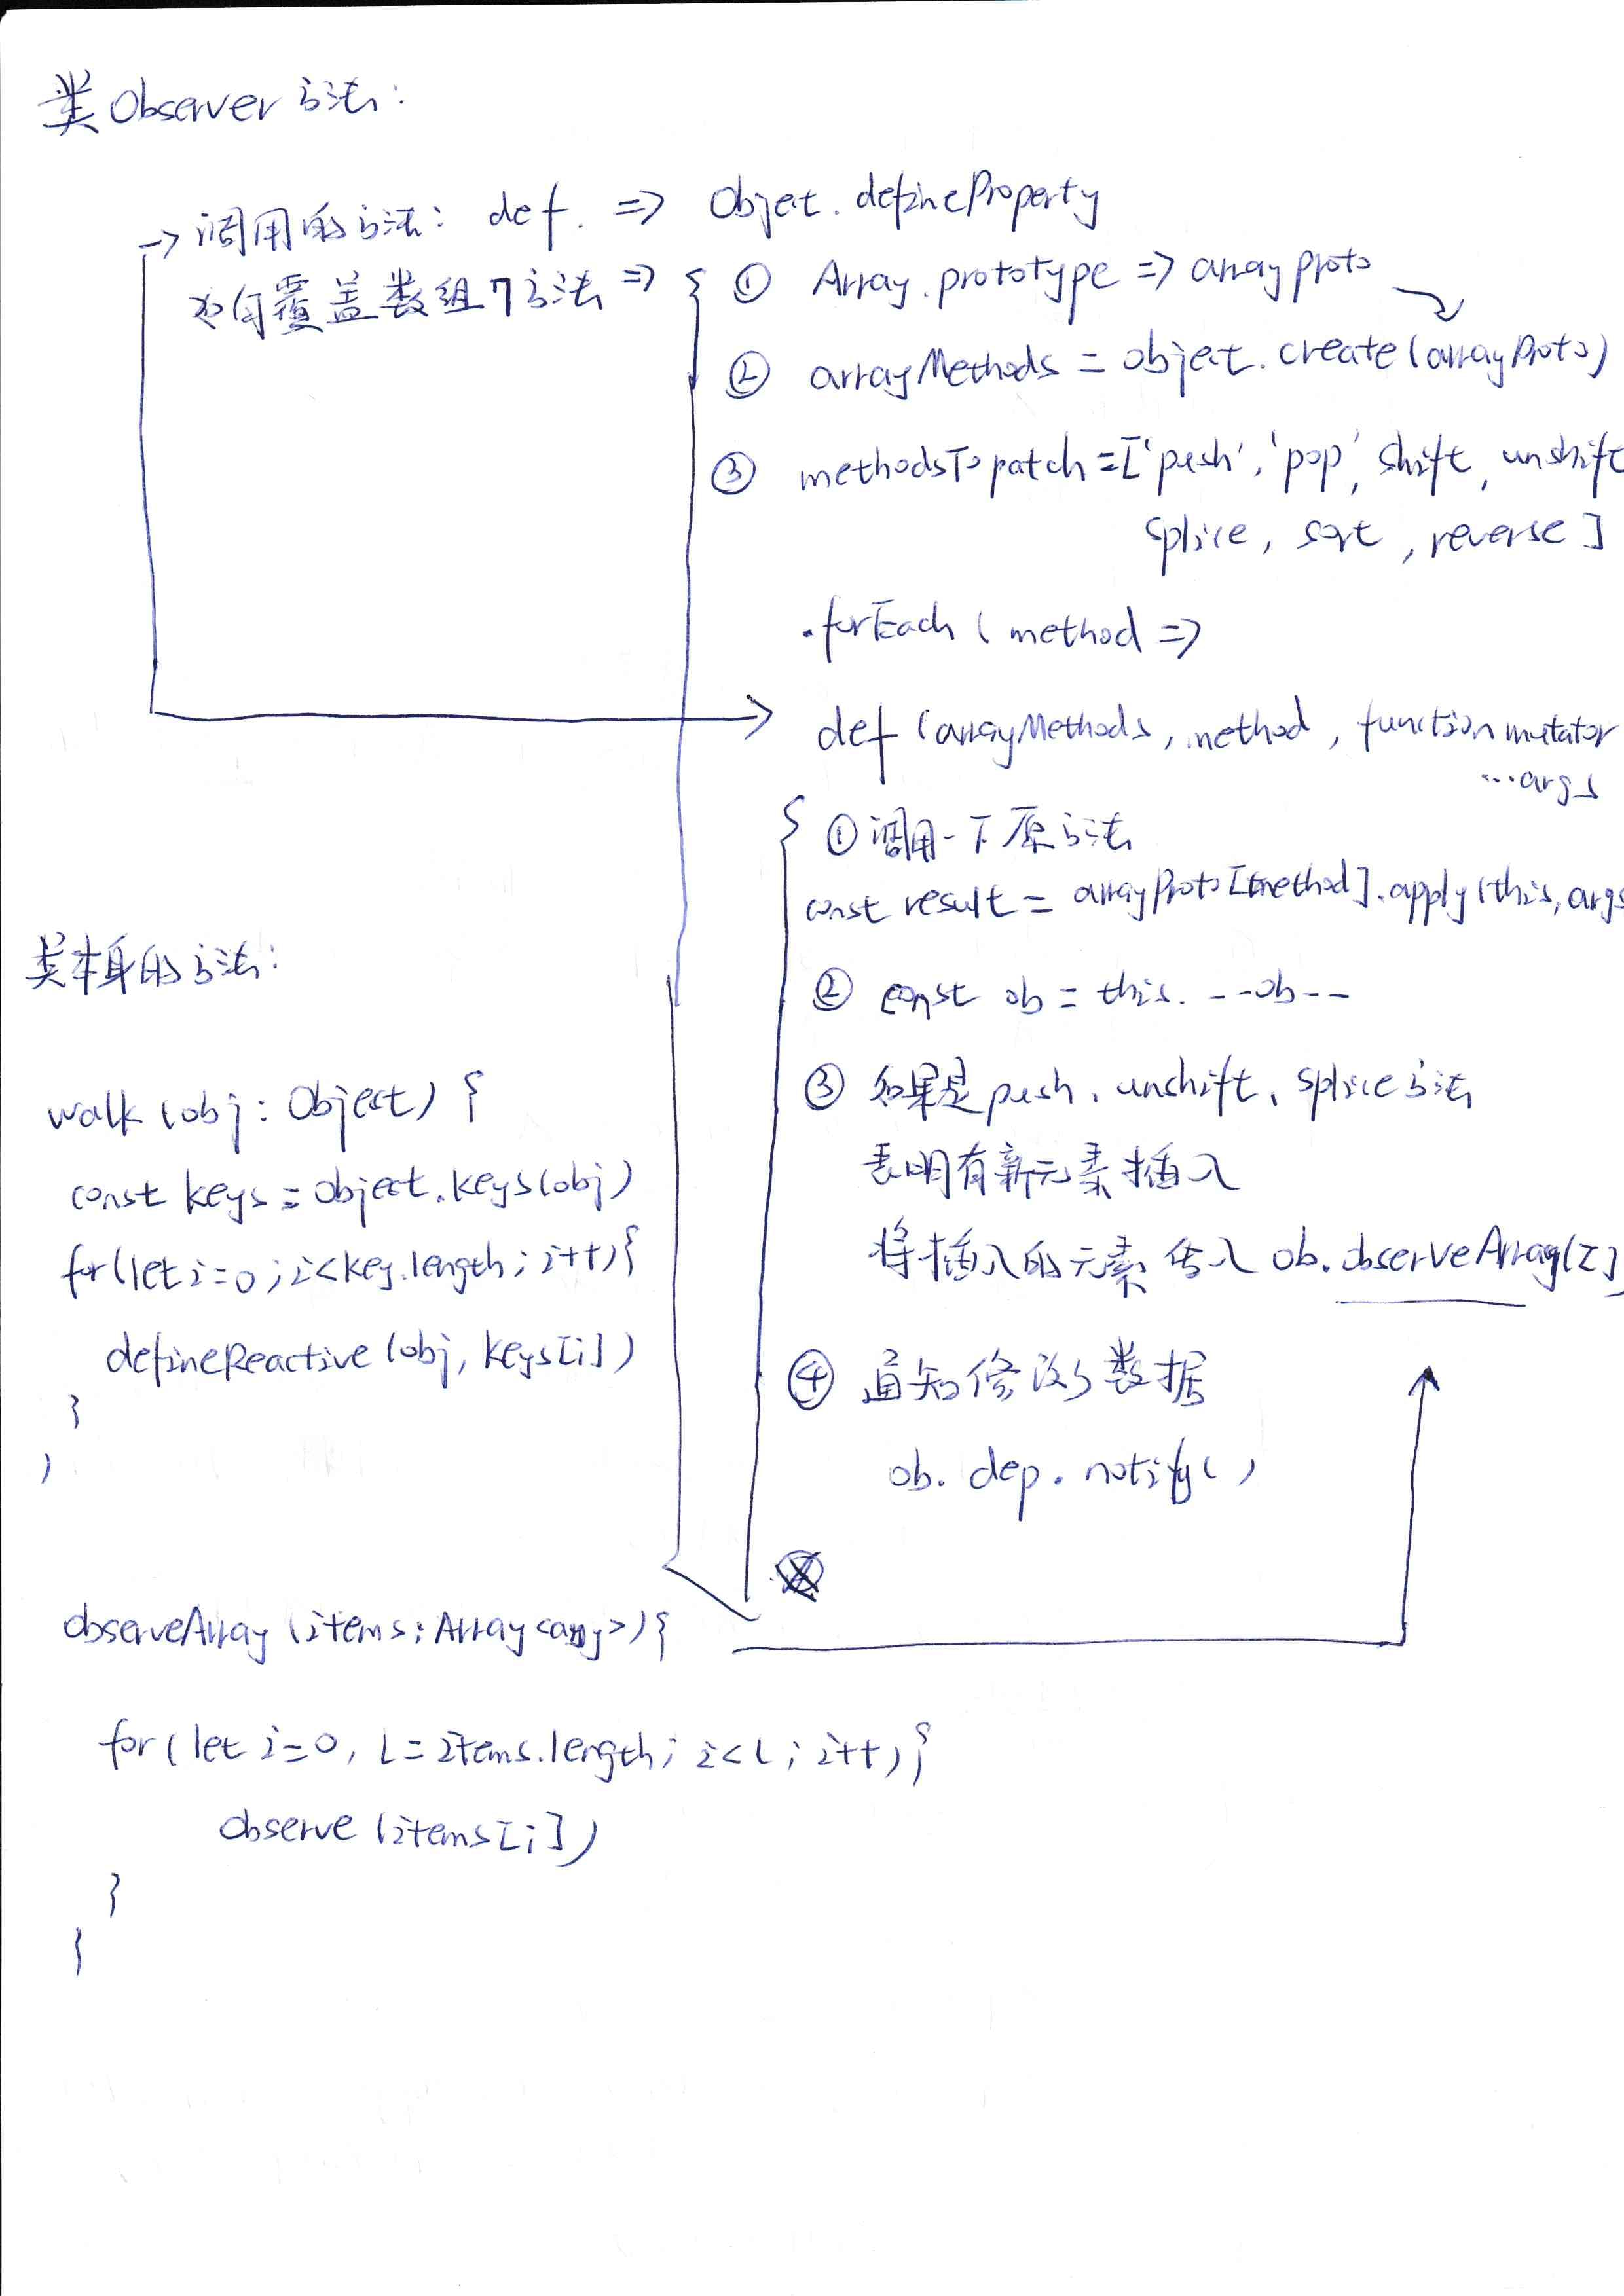 类 Observer 方法:
→ 调用的方法: def. => Objet.defineProperty
如何覆盖数组7方法 => { ① Array.prototype => arrayproto
② arrayMethods = object.create(arrayProto)
③ methodsTopatch=['push','pop', shift, unshift
splice, sort, reverse]
.forEach(method =>
def(arrayMethods, method, function mutator
...args
{ ①调用一下原方法
const result = arrayProto[method].apply(this, args
② const ob = this.__ob__
③ 如果是push、unshift、splice方法
表明有新元素插入
将插入的元素传入 ob.observeArray([]
④ 通知修改数据
ob.dep.notify()
类本身的方法:
walk(obj: Object) {
const keys = object.keys(obj)
for(let i=0; i<key.length; i++){
defineReactive(obj, keys[i])
}
)
observeArray(items: Array<any>){
for(let i=0, l=items.length; i<l; i++){
observe(items[i])
}
}